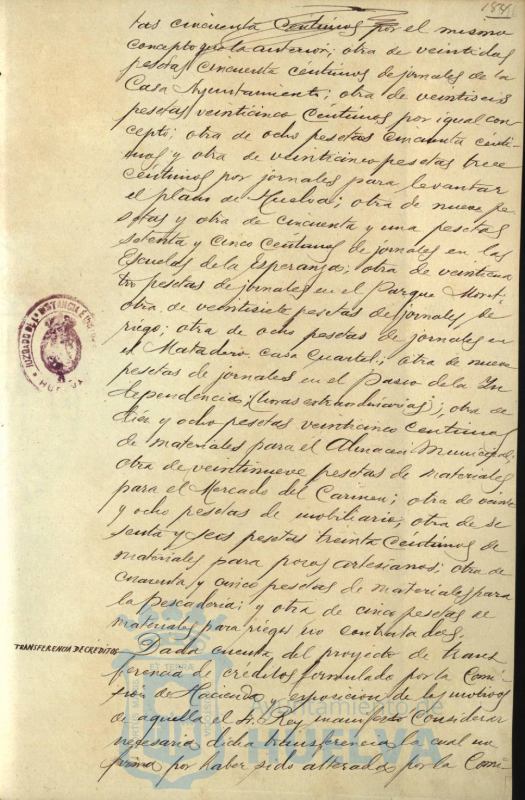 tas cincuenta céntimos por el mismo
concepto que la anterior; otra de veintidos
pesetas cincuenta céntimos de jornales de la
Casa Ayuntamiento; otra de veintiseis
pesetas veinticinco céntimos por igual con-
cepto; otra de ocho pesetas cincuenta cénti-
mos y otra de veinticinco pesetas trece
céntimos por jornales para levantar
el plano de Huelva; otra de nueve pe-
setas y otra de cincuenta y una pesetas
setenta y cinco céntimos de jornales en las
Escuelas de la Esperanza; otra de veinticua-
tro pesetas de jornales en el Parque Moret;
otra de veintisiete pesetas de jornales de
riego; otra de ocho pesetas de jornales en
el Matadero casa cuartel; otra de nueve
pesetas de jornales en el Paseo de la In-
dependencia (horas extraordinarias); otra de
diez y ocho pesetas veinticinco céntimos
de materiales para el Almacén Municipal;
otra de veintinueve pesetas de materiales
para el Mercado del Carmen; otra de veinte
y ocho pesetas de mobiliario; otra de se-
senta y seis pesetas treinta céntimos de
materiales para pozos artesianos; otra de
cuarenta y cinco pesetas de materiales para
la Pescadería; y otra de cinco pesetas de
materiales para riegos no contratados.
TRANSFERENCIA DE CREDITOS
Dada cuenta del proyecto de trans-
ferencia de créditos formulado por la Comi-
sión de Hacienda y exposición de los motivos
de aquella el Sr. Rey manifestó considerar
necesaria dicha transferencia la cual no
firma por haber sido alterada por la Comi-
HUELVA
Ayuntamiento de
HUELVA